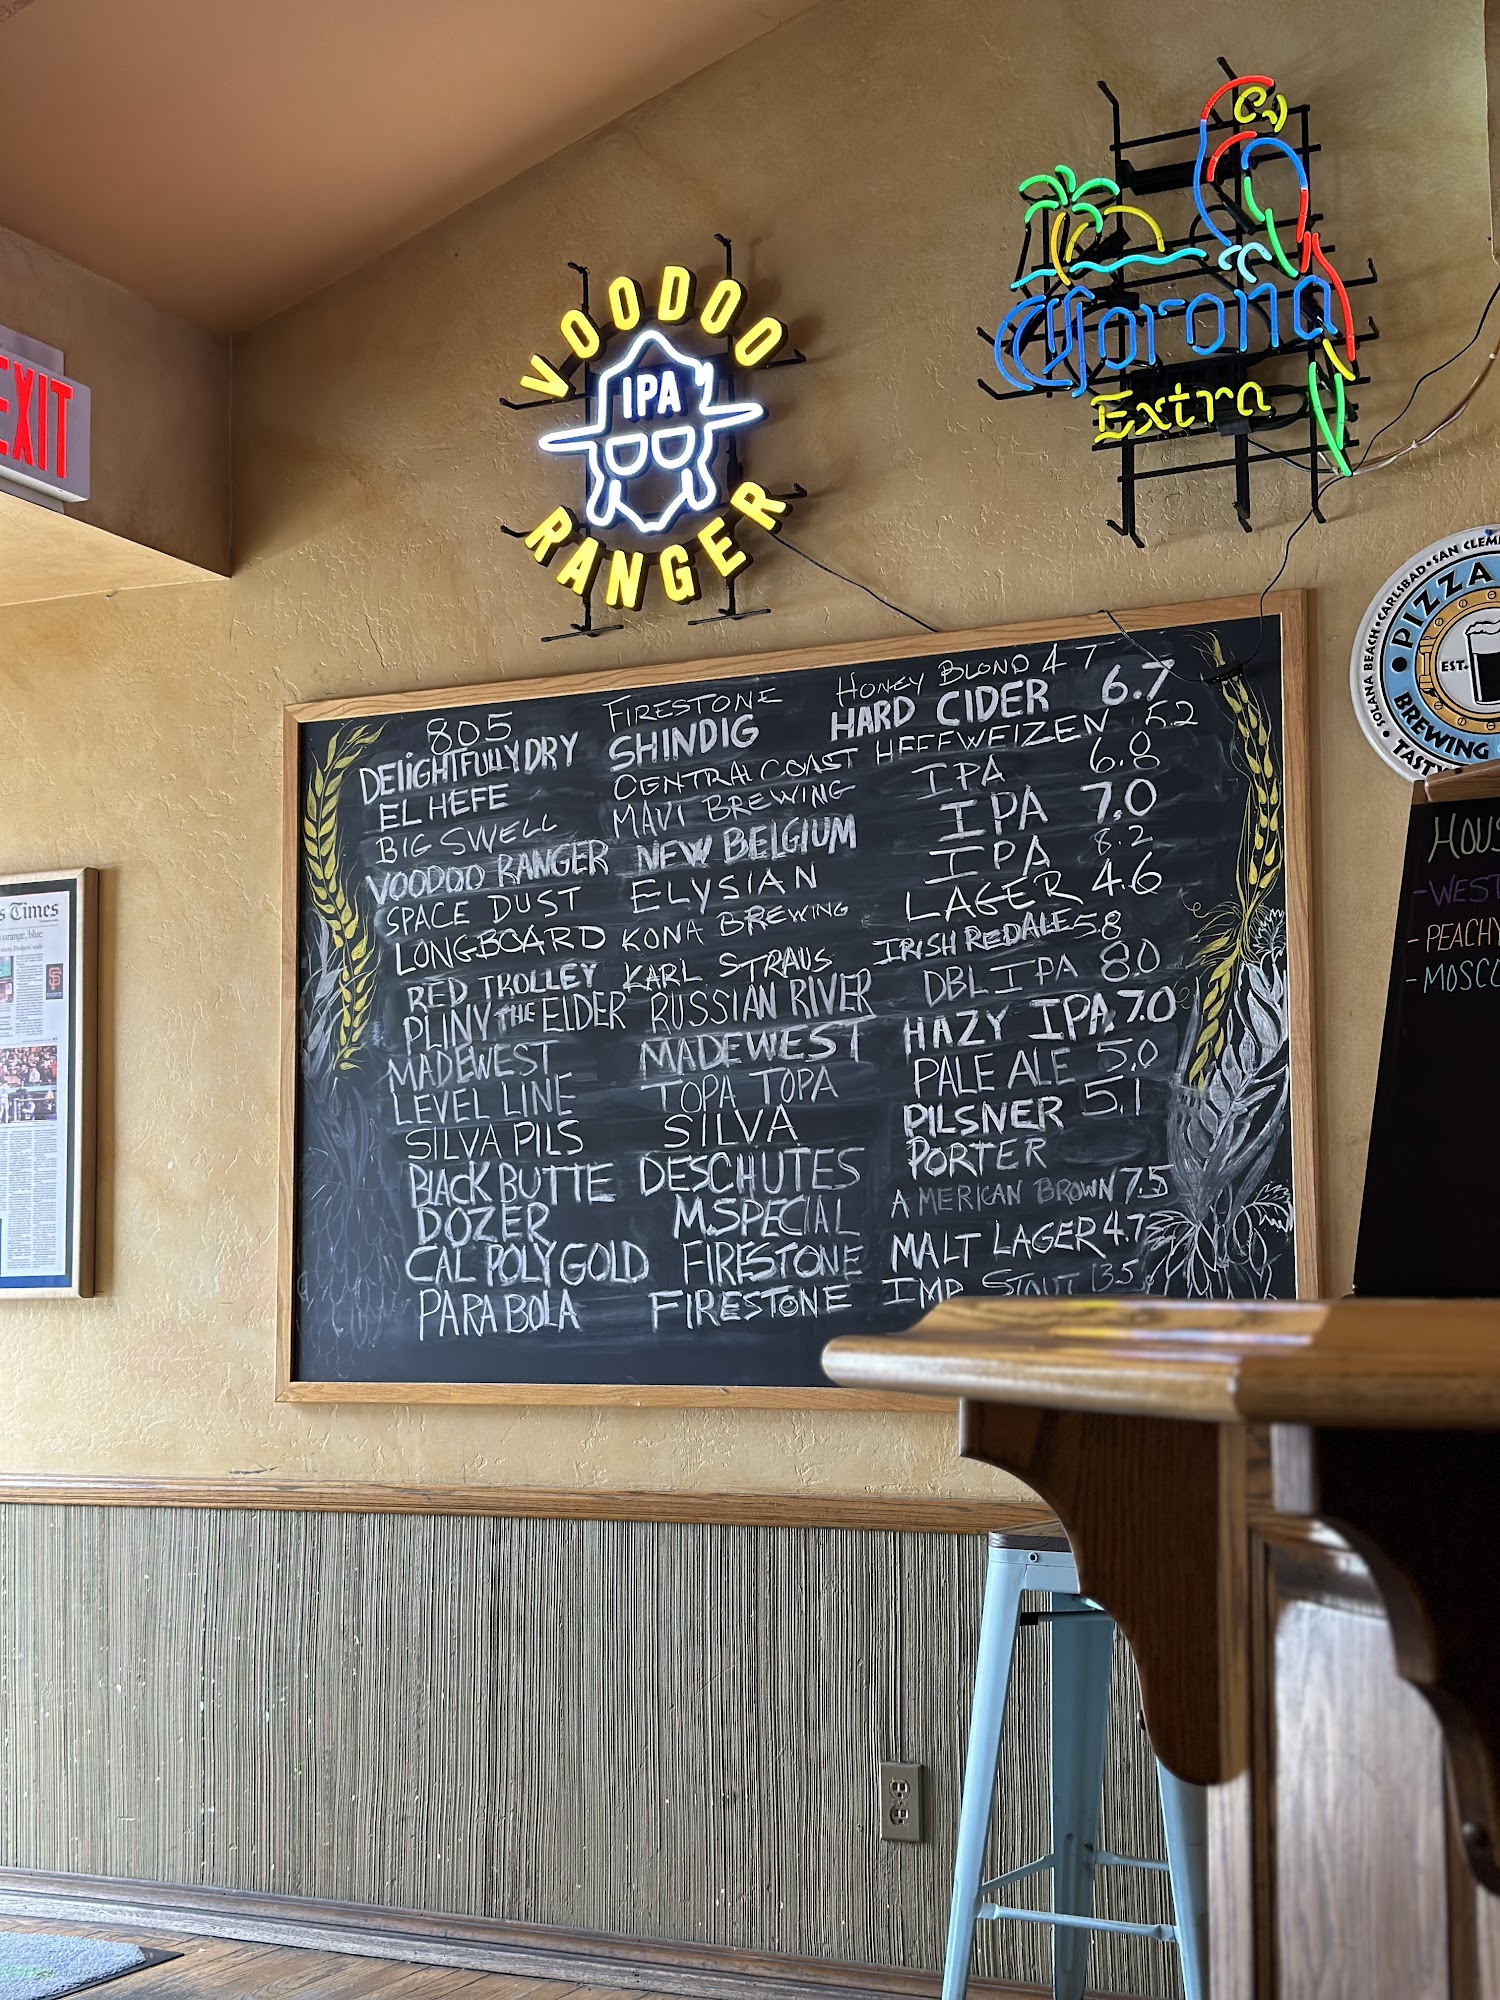 VOODOO
IPA
RANGER
Corona
Extra
EXIT
SOLANA BEACH • CARLSBAD • SAN CLEM
PIZZA
EST.
BREWING
TASTY
s Times
orange, blue
805 FIRESTONE HONEY BLOND 4 7
DELIGHTFULLY DRY SHINDIG HARD CIDER 6.7
EL HEFE CENTRAL COAST HEFFWEIZEN 5.2
BIG SWELL MAUI BREWING IPA 6.8
VOODOO RANGER NEW BELGIUM IPA 7.0
SPACE DUST ELYSIAN IPA 8.2
LONGBOARD KONA BREWING LAGER 4.6
RED TROLLEY KARL STRAUS IRISH RED ALE 5.8
PLINY THE ELDER RUSSIAN RIVER DBL IPA 8.0
MADEWEST MADEWEST HAZY IPA 7.0
LEVEL LINE TOPA TOPA PALE ALE 5.0
SILVA PILS SILVA PILSNER 5.1
BLACK BUTTE DESCHUTES PORTER
DOZER M.SPECIAL AMERICAN BROWN 7.5
CAL POLY GOLD FIRESTONE MALT LAGER 4.7
PARABOLA FIRESTONE IMP STOUT 13.5
HOUS
- WEST
- PEACHY
- MOSCO